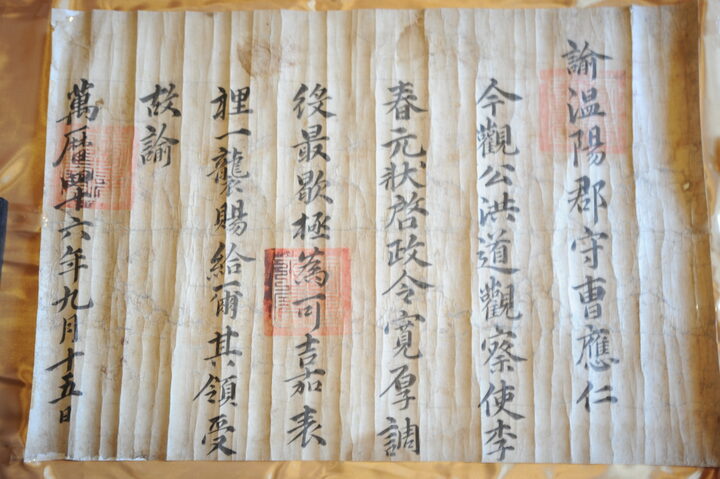 諭温陽郡守曹應仁
今觀公洪道觀察使李
春元狀啓政令寛厚調
役最歇極為可嘉表
裡一襲賜給爾其領受
故諭
萬曆四十六年九月十五日